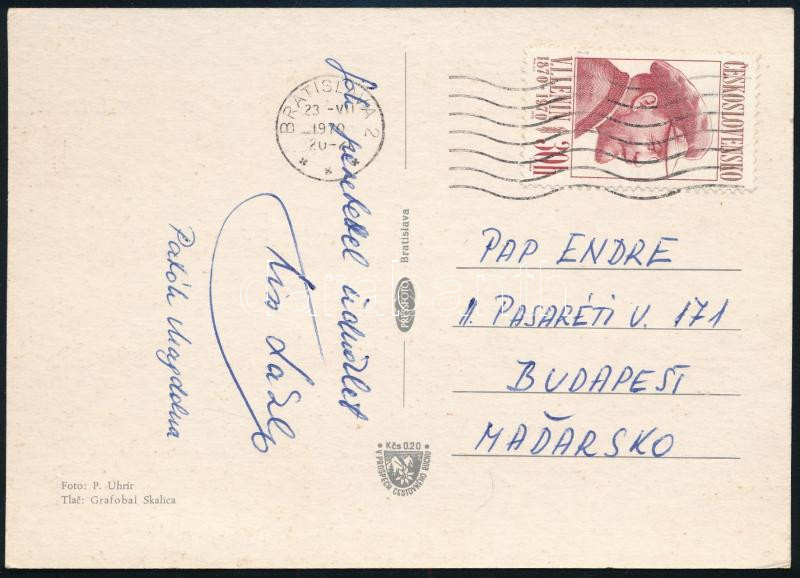 ČESKOSLOVENSKO
V.I. LENIN
1870-1970
30h
BRATISLAVA 2
23.-VII
1970
20-
Sok szeretettel üdvözlet
Kiss László
Patócs Magdolna
PAP ENDRE
II. PASARÉTI U. 171
BUDAPEST
MAĎARSKO
Bratislava
PRESSFOTO
• Kčs 0.20 •
V PROSPECH CESTOVNÉHO RUCHU
Foto: P. Uhrír
Tlač: Grafobal Skalica
darabanth